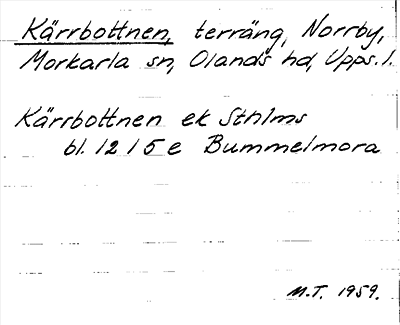 Kärrbottnen, terräng, Norrby,
Morkarla sn, Olands hd, Upps. l.
Kärrbottnen ek Sthlms
bl. 12 I 5 e Bummelmora
M.T. 1959.